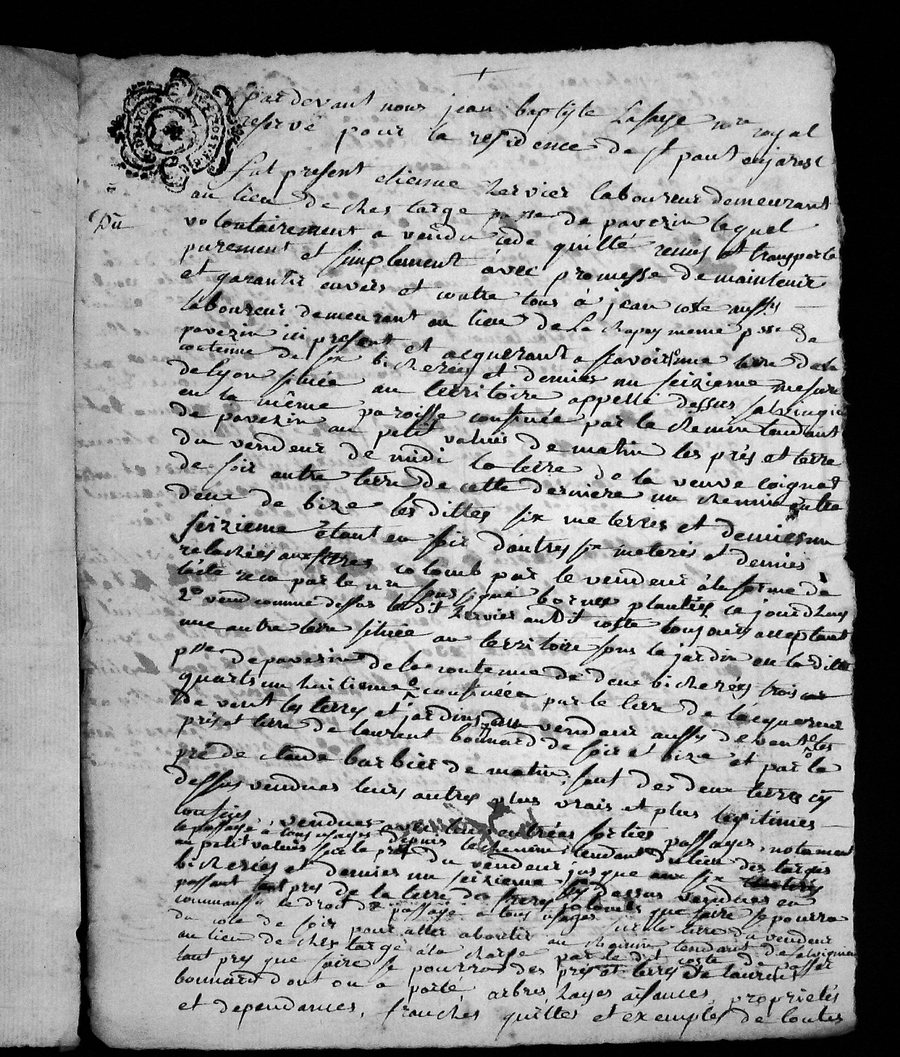 pardevant nous jean baptiste Lafaye nre royal
reservé pour la residence de st paul enjarest
fut present etienne hervier laboureur demeurant
au lieu de ches targe psse de paverin lequel
Du
volontairement a vendu cede quitté remis et transporté
purement et simplement avec promesse de maintenir
et garantir envers et contre tous à jean coste aussy
laboureur demeurant au lieu de La chapay meme psse de
paverin ici present et acquerant a scavoir une terre de la
contenue de six bicherées et demies un seizieme mesure
de lyon située au territoire appellé dessus
en la même paroisse confinée par le chemin tendant
de paverin au petit valués de matin les prés et terre
du vendeur de midi la terre de la veuve coignat
de soir autre terre de cette derniere un chemin entre
deux de bize les dittes six meterres et demies un
seizieme étant en soir d'autres six meterés et demies
relachées aux freres colomb par le vendeur à la forme de
l'acte recu par le nre soussigné bornes plantées ce jourdhuy
2° vend comme dessus ledit hervier audit coste toujours acceptant
une autre terre située au territoire sous le jardin en la ditte
psse de paverin de la contenue de deux bicherées trois
quarts un huitieme confinée par le terre de lacquereur
de vent les terres et jardins du vendeur aussi de vent les
prés et terre de laurent bonnard de soir et bize et par le
pré de claude barbier de matin, sont des deux terres cy
dessus vendues leurs autres plus vrais et plus legitimes
confins vendues avec leurs entrées sorties passages, notament
le passage à tous usages depuis le chemin tendant du lieu des targes
au petit valués sur le pré du vendeur jusque aux six
bicherées et demies un seizieme cy dessus vendues en
passant tout pres de la terre des freres colomb
communaux le droit de passage à tous usages que faire se pourra
du coté de soir pour aller aboutir au chemin tendant de
au lieu de ches targe à la charge par le dit coste de passer
tout pres que faire se pourra des prés et terres de laurent
bonnard dont on a parlé arbres, hayes aisances, proprietés
et dependances, franches quittes et exemptes de toutes